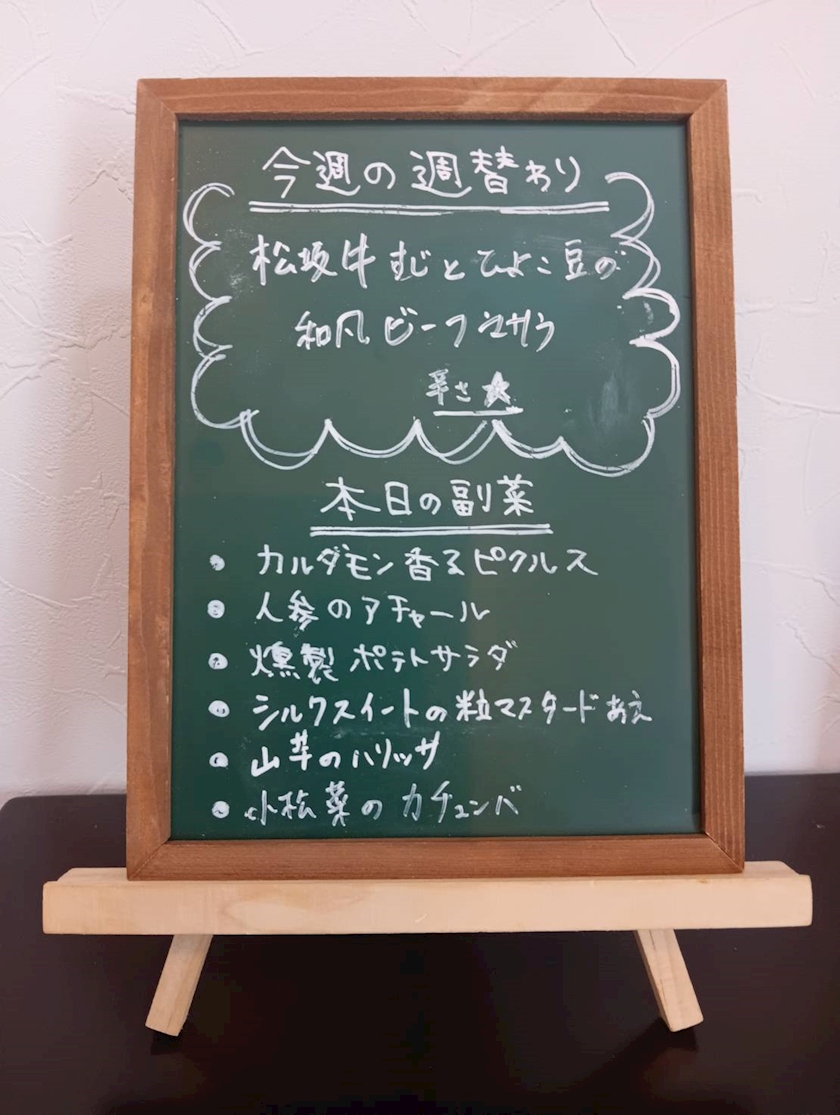 今週の週替わり
松坂牛すじとひよこ豆の
和風ビーフ
辛さ★
本日の副菜
・カルダモン香るピクルス
・人参のアチャール
・燻製ポテトサラダ
・シルクスイートの粒マスタードあえ
・山芋のハリッサ
・小松菜のカチュンバ